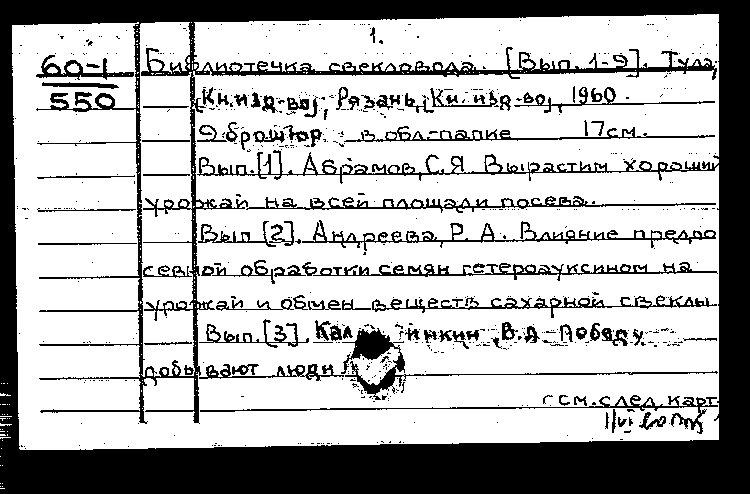 1.
60-1
550
Библиотечка свекловода. [Вып. 1-9]. Тула,
[Кн. изд-во], Рязань, [Кн. изд-во], 1960.
9 брошюр в обл-папке 17см.
Вып.[1]. Абрамов, С.Я. Вырастим хороший
урожай на всей площади посева.
Вып [2]. Андреева, Р.А. Влияние предпо
севной обработки семян гетероауксином на
урожай и обмен веществ сахарной свеклы
Вып.[3]. В.Д. Победу
добывают люди
см.след.карт